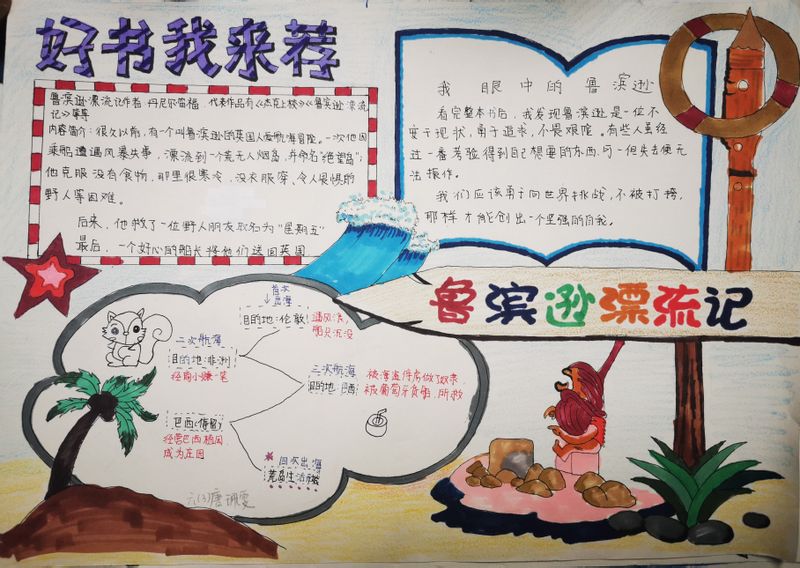 好书我来荐
鲁滨逊漂流记作者 丹尼尔笛福 代表作品有《杰克上校》《鲁滨逊漂流
记》等等
内容简介:很久以前,有一个叫鲁滨逊的英国人爱航海冒险。一次他因
乘船遭遇风暴失事,漂流到一个荒无人烟岛,并命名“绝望岛”;
他克服没有食物,那里很寒冷,没衣服穿,令人畏惧的
野人等困难。
后来,他救了一位野人朋友取名为“星期五”
最后,一个好心的船长将他们送回英国
我眼中的鲁滨逊
看完整本书后,我发现鲁滨逊是一位不
安于现状,勇于追求,不畏艰险。有些人虽经
过一番考验得到自己想要的东西,可一但失去便无
法振作。
我们应该勇于向世界挑战,不被打榜,
那样才能创出一个坚强的自我。
鲁滨逊漂流记
首次
出海
目的地:伦敦
遇风浪,
船只沉没
二次航海
目的地:非洲
经商小赚一笔
三次航海
目的地:
被海盗俘虏做了奴隶
被葡萄牙货船,所救
巴西(停留)
经营巴西种植园,
成为庄园
四次出海
荒岛生活
六(3)唐